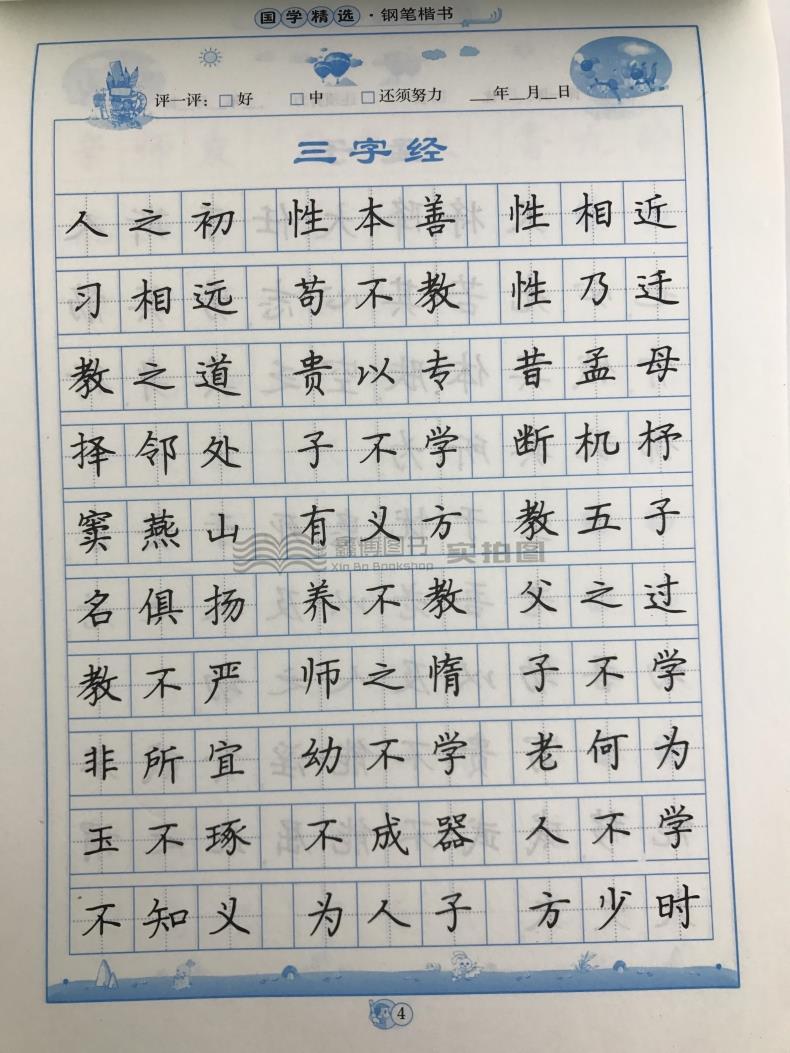 国学精选·钢笔楷书
评一评：□好 □中 □还须努力 ___年__月__日
三字经
人之初 性本善 性相近
习相远 苟不教 性乃迁
教之道 贵以专 昔孟母
择邻处 子不学 断机杼
窦燕山 有义方 教五子
鑫博图书 实拍图
Xin Bo Bookshop
名俱扬 养不教 父之过
教不严 师之惰 子不学
非所宜 幼不学 老何为
玉不琢 不成器 人不学
不知义 为人子 方少时
4